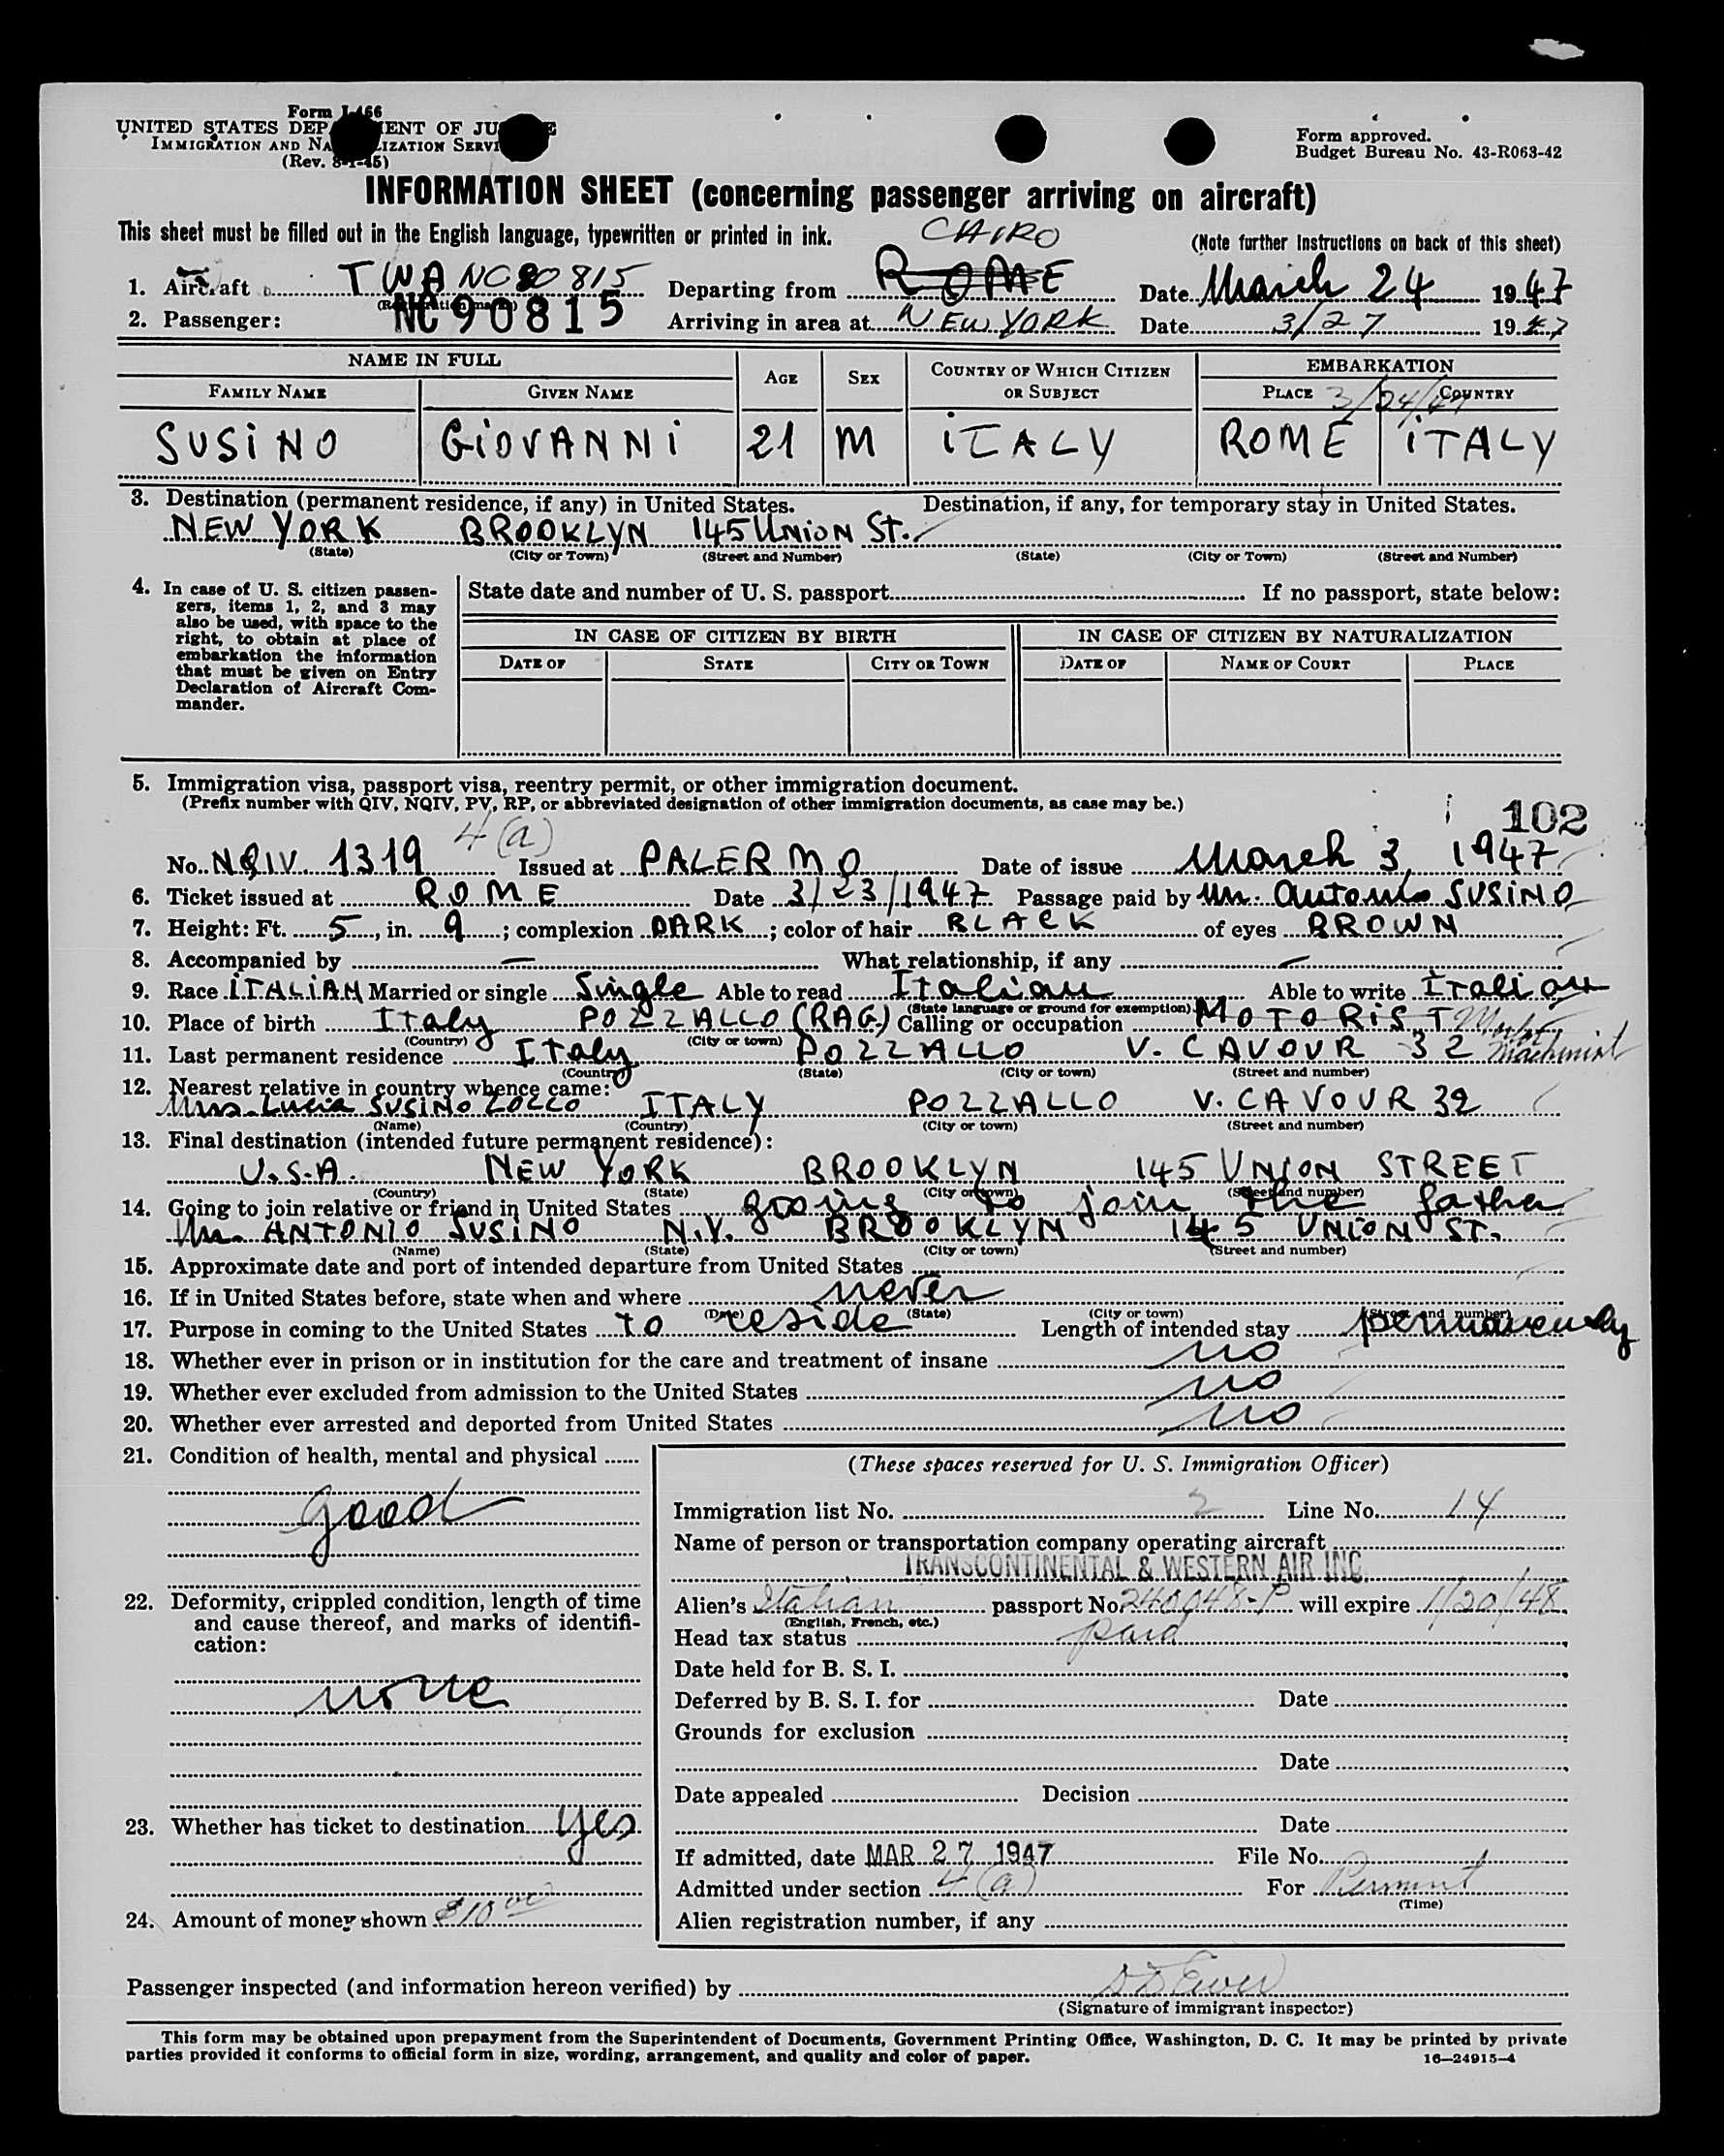 Form I-466
UNITED STATES DEPARTMENT OF JUSTICE
IMMIGRATION AND NATURALIZATION SERVICE
(Rev. 8-1-45)
Form approved.
Budget Bureau No. 43-R063-42
INFORMATION SHEET (concerning passenger arriving on aircraft)
This sheet must be filled out in the English language, typewritten or printed in ink.
(Note further instructions on back of this sheet)
CAIRO
1. Aircraft TWA NC90815 Departing from ROME Date March 24 1947
2. Passenger: NC90815 Arriving in area at NEW YORK Date 3/27 1947
NAME IN FULL AGE SEX COUNTRY OF WHICH CITIZEN OR SUBJECT EMBARKATION
FAMILY NAME GIVEN NAME PLACE 3/24/47 COUNTRY
SUSINO GIOVANNI 21 M ITALY ROME ITALY
3. Destination (permanent residence, if any) in United States. Destination, if any, for temporary stay in United States.
NEW YORK BROOKLYN 145 UNION St.
(State) (City or Town) (Street and Number) (State) (City or Town) (Street and Number)
4. In case of U. S. citizen passen-
gers, items 1, 2, and 3 may
also be used, with space to the
right, to obtain at place of
embarkation the information
that must be given on Entry
Declaration of Aircraft Com-
mander.
State date and number of U. S. passport If no passport, state below:
IN CASE OF CITIZEN BY BIRTH IN CASE OF CITIZEN BY NATURALIZATION
DATE OF STATE CITY OR TOWN DATE OF NAME OF COURT PLACE
5. Immigration visa, passport visa, reentry permit, or other immigration document.
(Prefix number with QIV, NQIV, PV, RP, or abbreviated designation of other immigration documents, as case may be.)
102
4(a)
No. NQIV. 1319 Issued at PALERMO Date of issue March 3, 1947
6. Ticket issued at ROME Date 3/23/1947 Passage paid by Mr. Antonio SUSINO
7. Height: Ft. 5, in. 9; complexion DARK; color of hair BLACK of eyes BROWN
8. Accompanied by — What relationship, if any —
9. Race ITALIAN Married or single Single Able to read Italian Able to write Italian
(State language or ground for exemption)
10. Place of birth Italy POZZALLO (RAG.) Calling or occupation MOTORIST Motor Machinist
(Country) (City or town)
11. Last permanent residence Italy POZZALLO V. CAVOUR 32
(Country) (State) (City or town) (Street and number)
12. Nearest relative in country whence came:
Mrs. Lucia SUSINO ZOCCO ITALY POZZALLO V. CAVOUR 32
(Name) (Country) (City or town) (Street and number)
13. Final destination (intended future permanent residence):
U.S.A. NEW YORK BROOKLYN 145 UNION STREET
(Country) (State) (City or town) (Street and number)
14. Going to join relative or friend in United States going to join the father
Mr. ANTONIO SUSINO N.Y. BROOKLYN 145 UNION ST.
(Name) (State) (City or town) (Street and number)
15. Approximate date and port of intended departure from United States
16. If in United States before, state when and where never
(Date) (State) (City or town) (Street and number)
17. Purpose in coming to the United States to reside Length of intended stay permanently
18. Whether ever in prison or in institution for the care and treatment of insane no
19. Whether ever excluded from admission to the United States no
20. Whether ever arrested and deported from United States no
21. Condition of health, mental and physical
good
22. Deformity, crippled condition, length of time
and cause thereof, and marks of identifi-
cation:
none
23. Whether has ticket to destination yes
24. Amount of money shown $10 00
(These spaces reserved for U. S. Immigration Officer)
Immigration list No. 2 Line No. 14
Name of person or transportation company operating aircraft
TRANSCONTINENTAL & WESTERN AIR INC.
Alien's Italian passport No. 240048-P will expire 1/20/48
(English, French, etc.)
Head tax status paid
Date held for B. S. I.
Deferred by B. S. I. for Date
Grounds for exclusion
Date
Date appealed Decision
Date
If admitted, date MAR 27 1947 File No.
Admitted under section 4(a) For Permint
(Time)
Alien registration number, if any
Passenger inspected (and information hereon verified) by
(Signature of immigrant inspector)
This form may be obtained upon prepayment from the Superintendent of Documents, Government Printing Office, Washington, D. C. It may be printed by private
parties provided it conforms to official form in size, wording, arrangement, and quality and color of paper.
16—24915-4